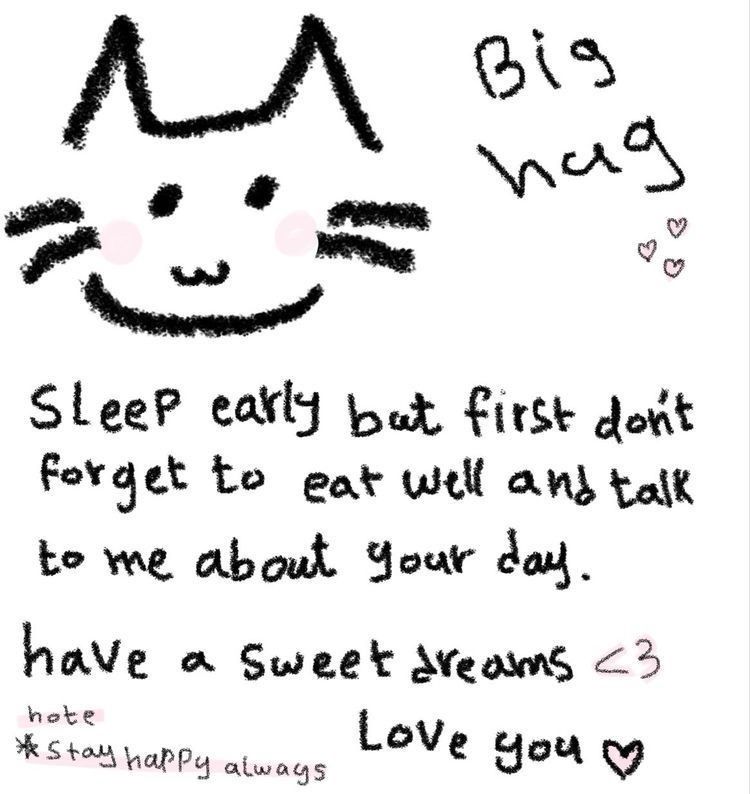 Big
hug
Sleep early but first don't
forget to eat well and talk
to me about your day.
have a sweet dreams <3
note
* Stay happy always
Love you ♡